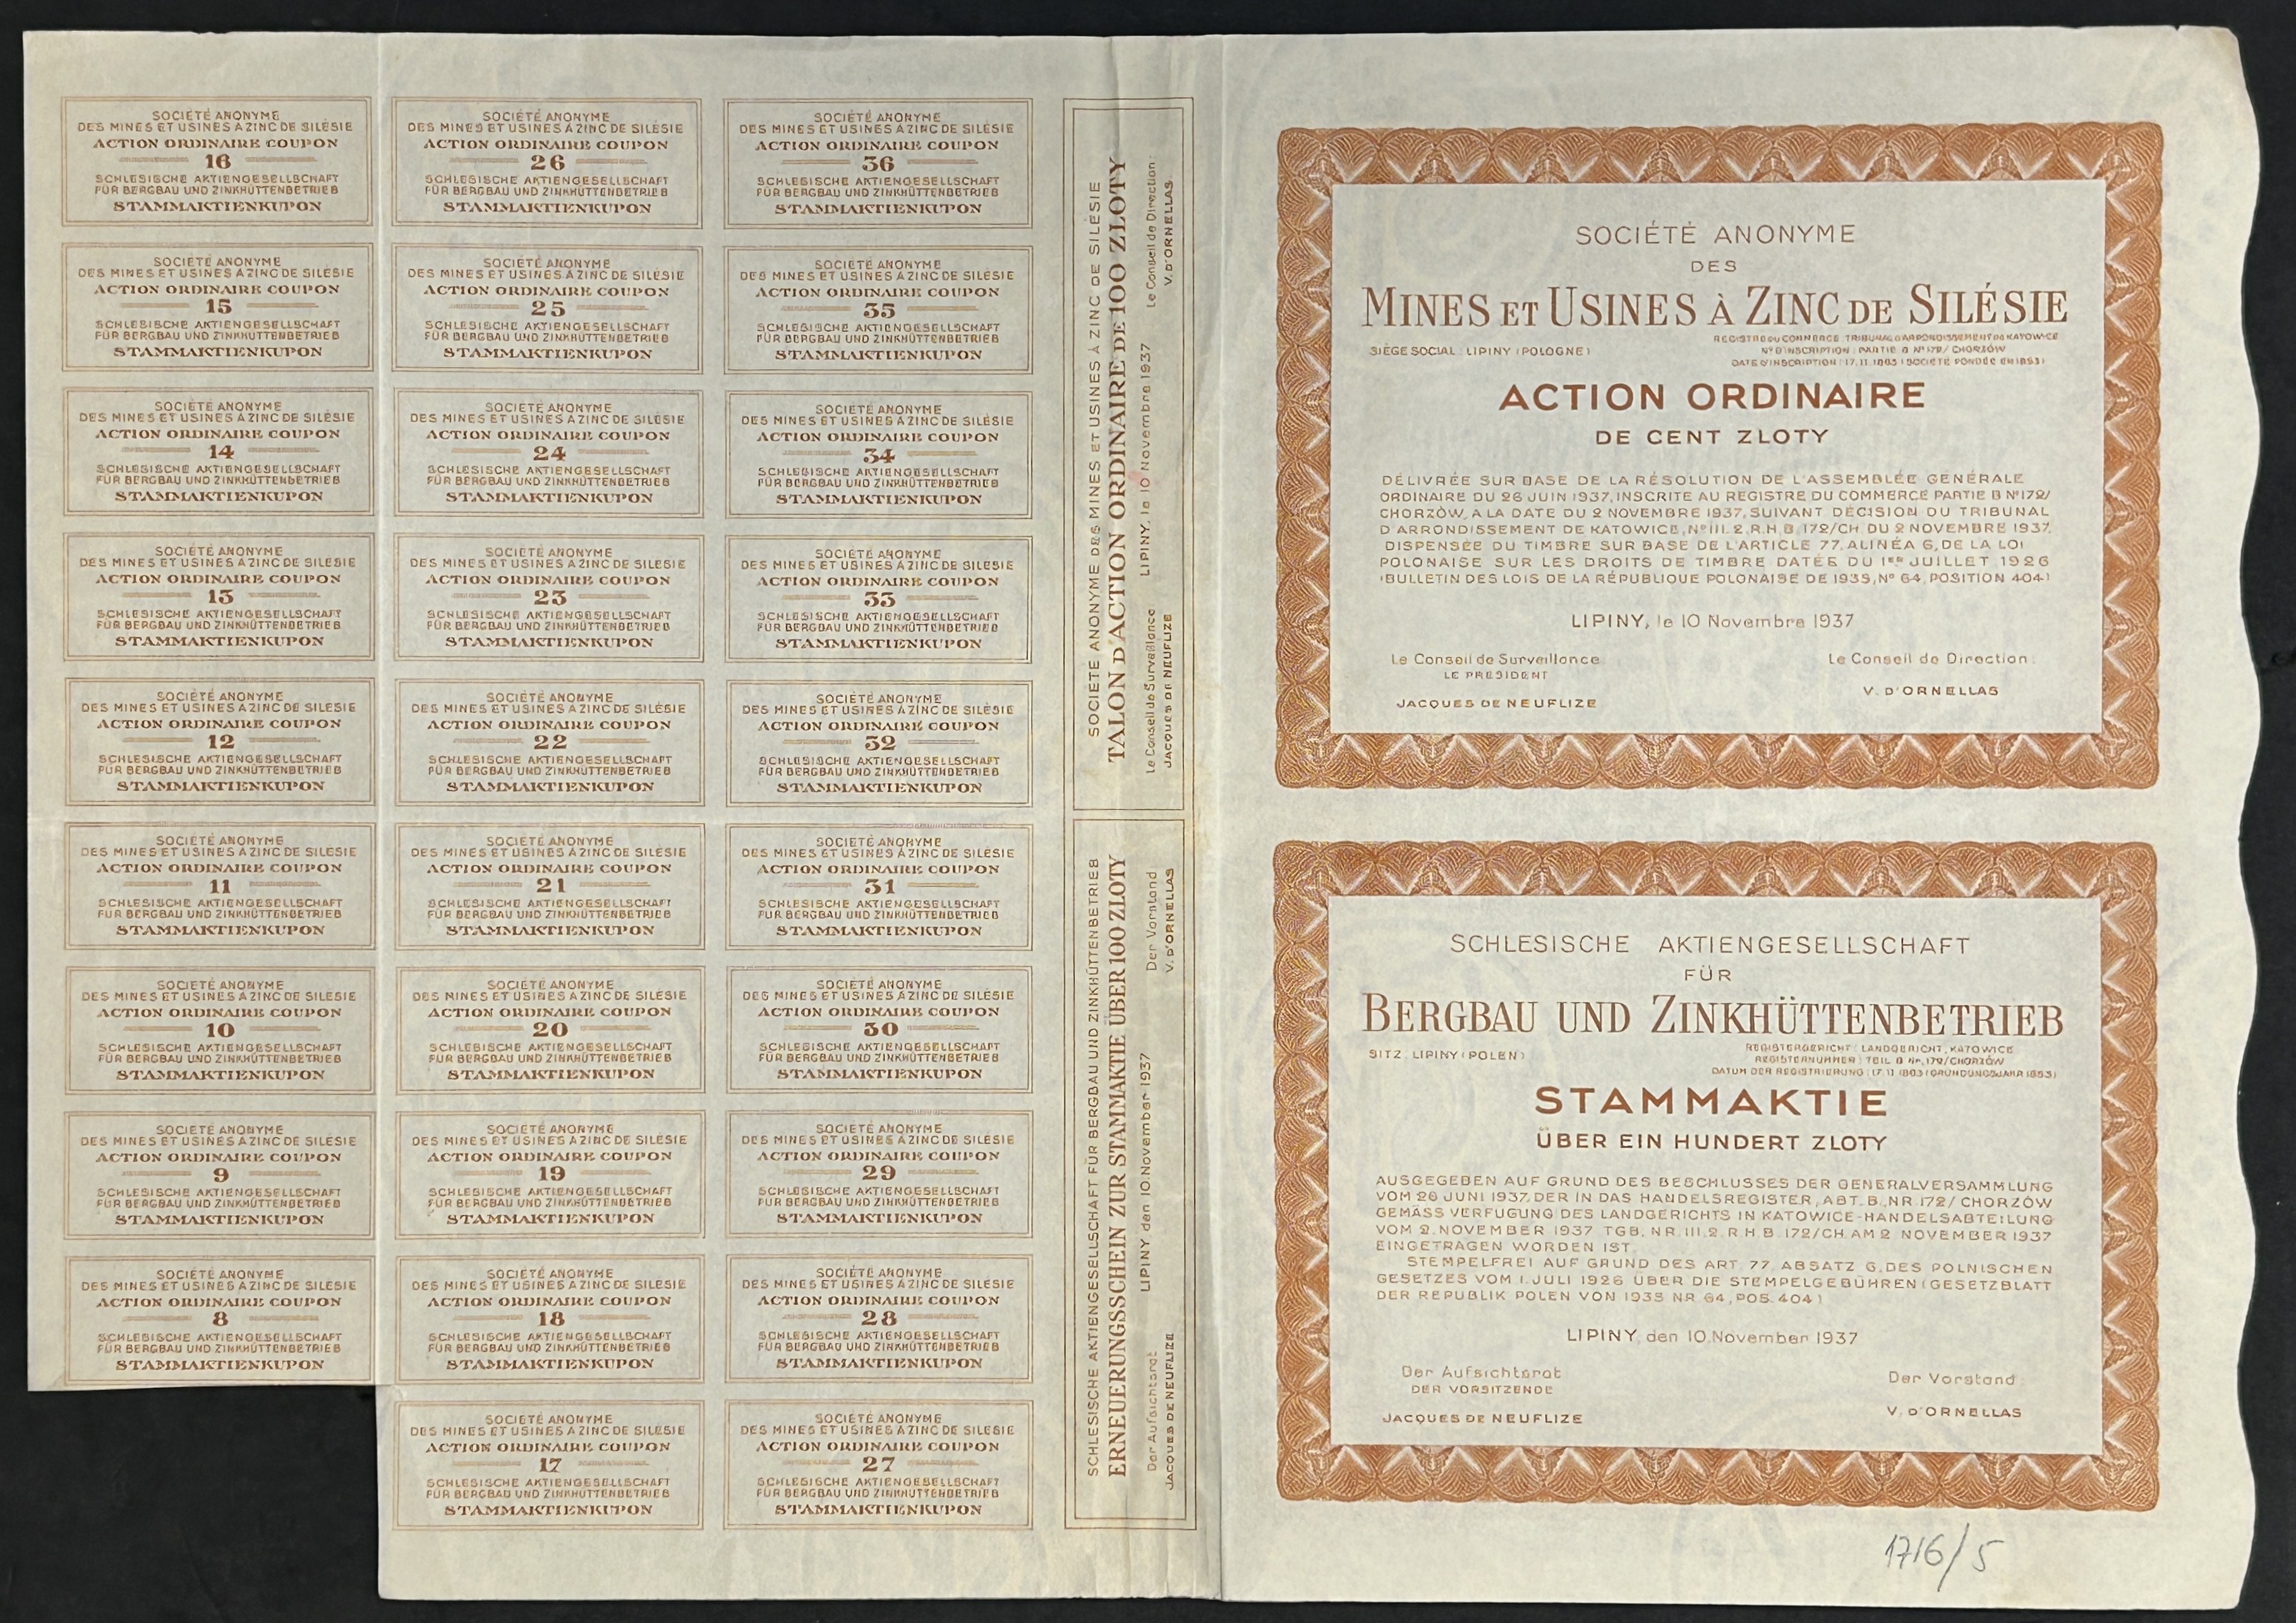 SOCIÉTÉ ANONYME
DES MINES ET USINES À ZINC DE SILÉSIE
ACTION ORDINAIRE COUPON
16
SCHLESISCHE AKTIENGESELLSCHAFT
FÜR BERGBAU UND ZINKHÜTTENBETRIEB
STAMMAKTIENKUPON
SOCIÉTÉ ANONYME
DES MINES ET USINES À ZINC DE SILÉSIE
ACTION ORDINAIRE COUPON
15
SCHLESISCHE AKTIENGESELLSCHAFT
FÜR BERGBAU UND ZINKHÜTTENBETRIEB
STAMMAKTIENKUPON
SOCIÉTÉ ANONYME
DES MINES ET USINES À ZINC DE SILÉSIE
ACTION ORDINAIRE COUPON
14
SCHLESISCHE AKTIENGESELLSCHAFT
FÜR BERGBAU UND ZINKHÜTTENBETRIEB
STAMMAKTIENKUPON
SOCIÉTÉ ANONYME
DES MINES ET USINES À ZINC DE SILÉSIE
ACTION ORDINAIRE COUPON
13
SCHLESISCHE AKTIENGESELLSCHAFT
FÜR BERGBAU UND ZINKHÜTTENBETRIEB
STAMMAKTIENKUPON
SOCIÉTÉ ANONYME
DES MINES ET USINES À ZINC DE SILÉSIE
ACTION ORDINAIRE COUPON
12
SCHLESISCHE AKTIENGESELLSCHAFT
FÜR BERGBAU UND ZINKHÜTTENBETRIEB
STAMMAKTIENKUPON
SOCIÉTÉ ANONYME
DES MINES ET USINES À ZINC DE SILÉSIE
ACTION ORDINAIRE COUPON
11
SCHLESISCHE AKTIENGESELLSCHAFT
FÜR BERGBAU UND ZINKHÜTTENBETRIEB
STAMMAKTIENKUPON
SOCIÉTÉ ANONYME
DES MINES ET USINES À ZINC DE SILÉSIE
ACTION ORDINAIRE COUPON
10
SCHLESISCHE AKTIENGESELLSCHAFT
FÜR BERGBAU UND ZINKHÜTTENBETRIEB
STAMMAKTIENKUPON
SOCIÉTÉ ANONYME
DES MINES ET USINES À ZINC DE SILÉSIE
ACTION ORDINAIRE COUPON
9
SCHLESISCHE AKTIENGESELLSCHAFT
FÜR BERGBAU UND ZINKHÜTTENBETRIEB
STAMMAKTIENKUPON
SOCIÉTÉ ANONYME
DES MINES ET USINES À ZINC DE SILÉSIE
ACTION ORDINAIRE COUPON
8
SCHLESISCHE AKTIENGESELLSCHAFT
FÜR BERGBAU UND ZINKHÜTTENBETRIEB
STAMMAKTIENKUPON
SOCIÉTÉ ANONYME
DES MINES ET USINES À ZINC DE SILÉSIE
ACTION ORDINAIRE COUPON
26
SCHLESISCHE AKTIENGESELLSCHAFT
FÜR BERGBAU UND ZINKHÜTTENBETRIEB
STAMMAKTIENKUPON
SOCIÉTÉ ANONYME
DES MINES ET USINES À ZINC DE SILÉSIE
ACTION ORDINAIRE COUPON
25
SCHLESISCHE AKTIENGESELLSCHAFT
FÜR BERGBAU UND ZINKHÜTTENBETRIEB
STAMMAKTIENKUPON
SOCIÉTÉ ANONYME
DES MINES ET USINES À ZINC DE SILÉSIE
ACTION ORDINAIRE COUPON
24
SCHLESISCHE AKTIENGESELLSCHAFT
FÜR BERGBAU UND ZINKHÜTTENBETRIEB
STAMMAKTIENKUPON
SOCIÉTÉ ANONYME
DES MINES ET USINES À ZINC DE SILÉSIE
ACTION ORDINAIRE COUPON
23
SCHLESISCHE AKTIENGESELLSCHAFT
FÜR BERGBAU UND ZINKHÜTTENBETRIEB
STAMMAKTIENKUPON
SOCIÉTÉ ANONYME
DES MINES ET USINES À ZINC DE SILÉSIE
ACTION ORDINAIRE COUPON
22
SCHLESISCHE AKTIENGESELLSCHAFT
FÜR BERGBAU UND ZINKHÜTTENBETRIEB
STAMMAKTIENKUPON
SOCIÉTÉ ANONYME
DES MINES ET USINES À ZINC DE SILÉSIE
ACTION ORDINAIRE COUPON
21
SCHLESISCHE AKTIENGESELLSCHAFT
FÜR BERGBAU UND ZINKHÜTTENBETRIEB
STAMMAKTIENKUPON
SOCIÉTÉ ANONYME
DES MINES ET USINES À ZINC DE SILÉSIE
ACTION ORDINAIRE COUPON
20
SCHLESISCHE AKTIENGESELLSCHAFT
FÜR BERGBAU UND ZINKHÜTTENBETRIEB
STAMMAKTIENKUPON
SOCIÉTÉ ANONYME
DES MINES ET USINES À ZINC DE SILÉSIE
ACTION ORDINAIRE COUPON
19
SCHLESISCHE AKTIENGESELLSCHAFT
FÜR BERGBAU UND ZINKHÜTTENBETRIEB
STAMMAKTIENKUPON
SOCIÉTÉ ANONYME
DES MINES ET USINES À ZINC DE SILÉSIE
ACTION ORDINAIRE COUPON
18
SCHLESISCHE AKTIENGESELLSCHAFT
FÜR BERGBAU UND ZINKHÜTTENBETRIEB
STAMMAKTIENKUPON
SOCIÉTÉ ANONYME
DES MINES ET USINES À ZINC DE SILÉSIE
ACTION ORDINAIRE COUPON
17
SCHLESISCHE AKTIENGESELLSCHAFT
FÜR BERGBAU UND ZINKHÜTTENBETRIEB
STAMMAKTIENKUPON
SOCIÉTÉ ANONYME
DES MINES ET USINES À ZINC DE SILÉSIE
ACTION ORDINAIRE COUPON
36
SCHLESISCHE AKTIENGESELLSCHAFT
FÜR BERGBAU UND ZINKHÜTTENBETRIEB
STAMMAKTIENKUPON
SOCIÉTÉ ANONYME
DES MINES ET USINES À ZINC DE SILÉSIE
ACTION ORDINAIRE COUPON
35
SCHLESISCHE AKTIENGESELLSCHAFT
FÜR BERGBAU UND ZINKHÜTTENBETRIEB
STAMMAKTIENKUPON
SOCIÉTÉ ANONYME
DES MINES ET USINES À ZINC DE SILÉSIE
ACTION ORDINAIRE COUPON
34
SCHLESISCHE AKTIENGESELLSCHAFT
FÜR BERGBAU UND ZINKHÜTTENBETRIEB
STAMMAKTIENKUPON
SOCIÉTÉ ANONYME
DES MINES ET USINES À ZINC DE SILÉSIE
ACTION ORDINAIRE COUPON
33
SCHLESISCHE AKTIENGESELLSCHAFT
FÜR BERGBAU UND ZINKHÜTTENBETRIEB
STAMMAKTIENKUPON
SOCIÉTÉ ANONYME
DES MINES ET USINES À ZINC DE SILÉSIE
ACTION ORDINAIRE COUPON
32
SCHLESISCHE AKTIENGESELLSCHAFT
FÜR BERGBAU UND ZINKHÜTTENBETRIEB
STAMMAKTIENKUPON
SOCIÉTÉ ANONYME
DES MINES ET USINES À ZINC DE SILÉSIE
ACTION ORDINAIRE COUPON
31
SCHLESISCHE AKTIENGESELLSCHAFT
FÜR BERGBAU UND ZINKHÜTTENBETRIEB
STAMMAKTIENKUPON
SOCIÉTÉ ANONYME
DES MINES ET USINES À ZINC DE SILÉSIE
ACTION ORDINAIRE COUPON
30
SCHLESISCHE AKTIENGESELLSCHAFT
FÜR BERGBAU UND ZINKHÜTTENBETRIEB
STAMMAKTIENKUPON
SOCIÉTÉ ANONYME
DES MINES ET USINES À ZINC DE SILÉSIE
ACTION ORDINAIRE COUPON
29
SCHLESISCHE AKTIENGESELLSCHAFT
FÜR BERGBAU UND ZINKHÜTTENBETRIEB
STAMMAKTIENKUPON
SOCIÉTÉ ANONYME
DES MINES ET USINES À ZINC DE SILÉSIE
ACTION ORDINAIRE COUPON
28
SCHLESISCHE AKTIENGESELLSCHAFT
FÜR BERGBAU UND ZINKHÜTTENBETRIEB
STAMMAKTIENKUPON
SOCIÉTÉ ANONYME
DES MINES ET USINES À ZINC DE SILÉSIE
ACTION ORDINAIRE COUPON
27
SCHLESISCHE AKTIENGESELLSCHAFT
FÜR BERGBAU UND ZINKHÜTTENBETRIEB
STAMMAKTIENKUPON
SOCIÉTÉ ANONYME DES MINES ET USINES À ZINC DE SILÉSIE
TALON D'ACTION ORDINAIRE DE 100 ZLOTY
Le Conseil de Surveillance LIPINY, le 10 Novembre 1937 Le Conseil de Direction:
JACQUES DE NEUFLIZE V. D'ORNELLAS
SCHLESISCHE AKTIENGESELLSCHAFT FÜR BERGBAU UND ZINKHÜTTENBETRIEB
ERNEUERUNGSSCHEIN ZUR STAMMAKTIE ÜBER 100 ZLOTY
Der Aufsichtsrat LIPINY den 10 November 1937 Der Vorstand
JACQUES DE NEUFLIZE V. D'ORNELLAS
SOCIÉTÉ ANONYME
DES
MINES ET USINES À ZINC DE SILÉSIE
SIÈGE SOCIAL: LIPINY (POLOGNE)
REGISTRE DU COMMERCE: TRIBUNAL D'ARRONDISSEMENT DE KATOWICE
N° D'INSCRIPTION: PARTIE B N° 172/ CHORZÓW
DATE D'INSCRIPTION: 17.11.1863 (SOCIÉTÉ FONDÉE EN 1853)
ACTION ORDINAIRE
DE CENT ZLOTY
DÉLIVRÉE SUR BASE DE LA RÉSOLUTION DE L'ASSEMBLÉE GÉNÉRALE
ORDINAIRE DU 26 JUIN 1937, INSCRITE AU REGISTRE DU COMMERCE PARTIE B N° 172/
CHORZÓW, A LA DATE DU 2 NOVEMBRE 1937, SUIVANT DÉCISION DU TRIBUNAL
D'ARRONDISSEMENT DE KATOWICE, N° III. 2. R.H.B. 172/CH. DU 2 NOVEMBRE 1937.
DISPENSÉE DU TIMBRE SUR BASE DE L'ARTICLE 77, ALINÉA 6, DE LA LOI
POLONAISE SUR LES DROITS DE TIMBRE DATÉE DU 1ER JUILLET 1926
(BULLETIN DES LOIS DE LA RÉPUBLIQUE POLONAISE DE 1935, N° 64, POSITION 404)
LIPINY, le 10 Novembre 1937
Le Conseil de Surveillance Le Conseil de Direction:
LE PRÉSIDENT
JACQUES DE NEUFLIZE V. D'ORNELLAS
SCHLESISCHE AKTIENGESELLSCHAFT
FÜR
BERGBAU UND ZINKHÜTTENBETRIEB
SITZ: LIPINY (POLEN)
REGISTERGERICHT: LANDGERICHT, KATOWICE
REGISTERNUMMER: TEIL B Nr. 172/CHORZÓW
DATUM DER REGISTRIERUNG: 17.11.1863 (GRÜNDUNGSJAHR 1853)
STAMMAKTIE
ÜBER EIN HUNDERT ZLOTY
AUSGEGEBEN AUF GRUND DES BESCHLUSSES DER GENERALVERSAMMLUNG
VOM 26 JUNI 1937, DER IN DAS HANDELSREGISTER, ABT. B. NR 172/ CHORZÓW
GEMÄSS VERFÜGUNG DES LANDGERICHTS IN KATOWICE-HANDELSABTEILUNG
VOM 2. NOVEMBER 1937 TGB. NR. III. 2. R.H.B. 172/CH. AM 2 NOVEMBER 1937
EINGETRAGEN WORDEN IST.
STEMPELFREI AUF GRUND DES ART. 77, ABSATZ 6, DES POLNISCHEN
GESETZES VOM 1. JULI 1926 ÜBER DIE STEMPELGEBÜHREN (GESETZBLATT
DER REPUBLIK POLEN VON 1935 NR. 64, POS. 404)
LIPINY, den 10. November 1937
Der Aufsichtsrat Der Vorstand:
DER VORSITZENDE
JACQUES DE NEUFLIZE V. D'ORNELLAS
1716/5